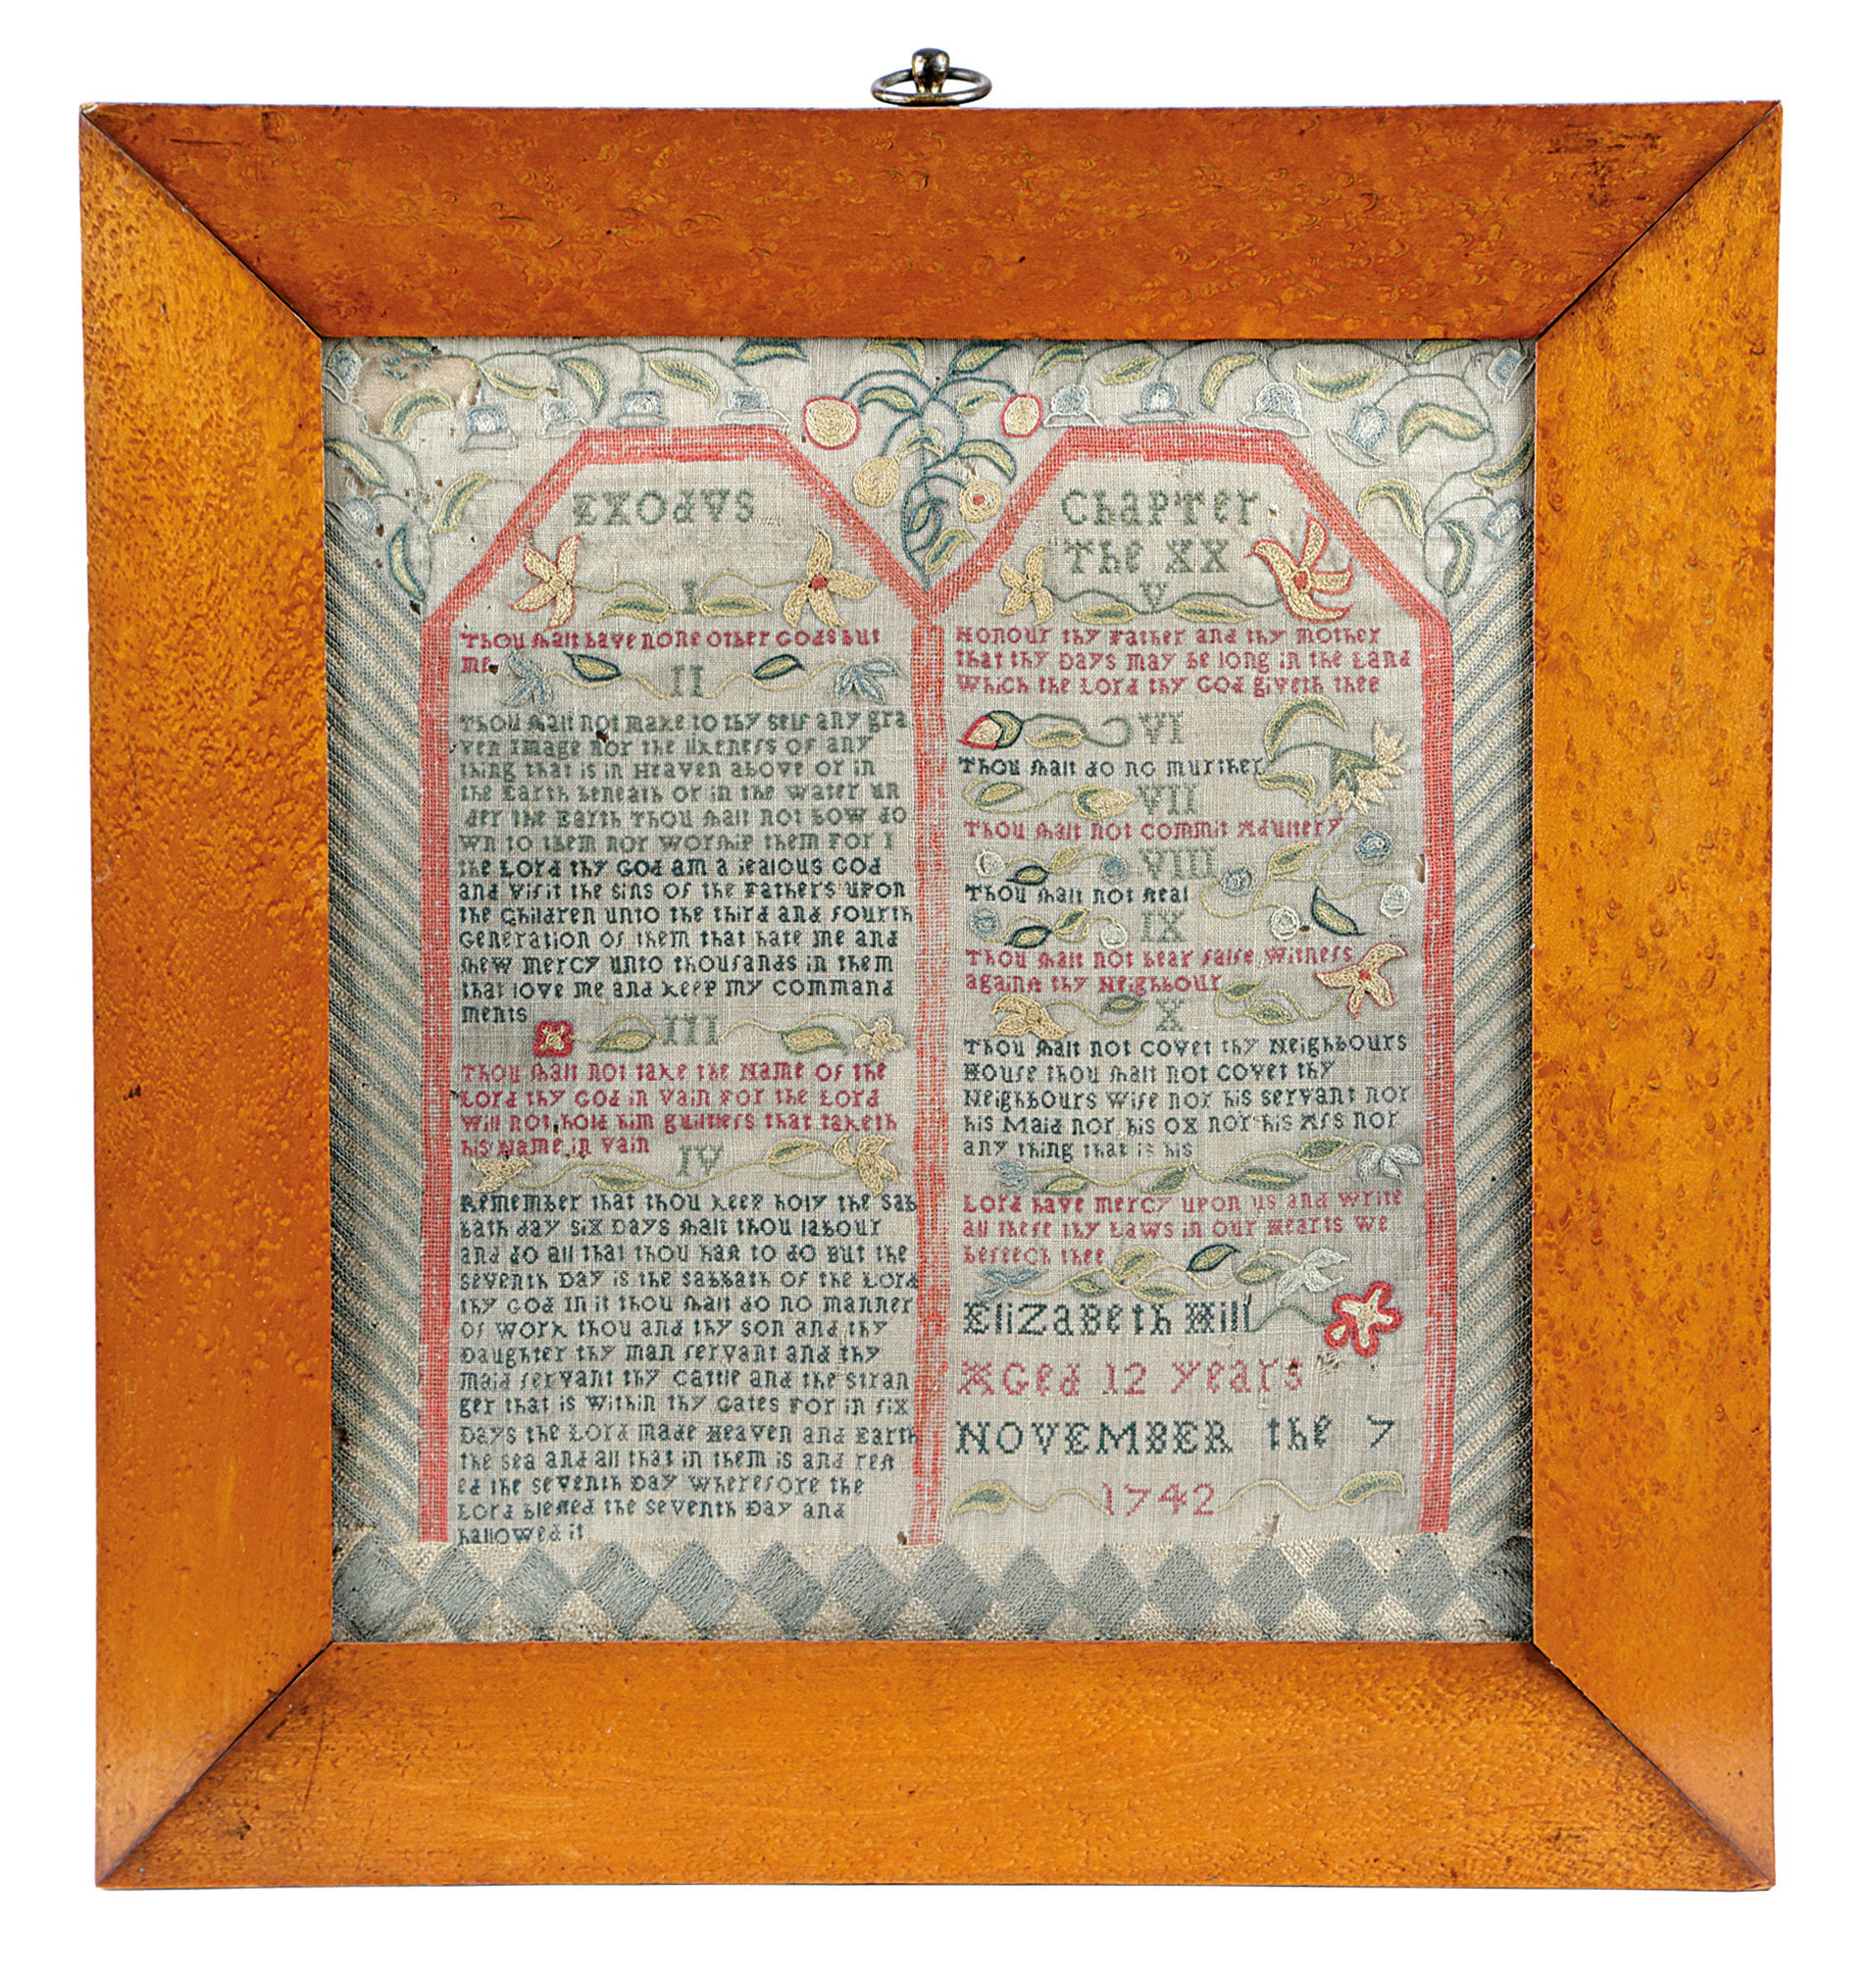 EXODVS
I
Thou ſhalt have none other Gods but
me
II
Thou ſhalt not make to thy self any gra
ven Image nor the likeneſs of any
thing that is in Heaven above or in
the Earth beneath or in the water un
der the Earth Thou ſhalt not bow do
wn to them nor worſhip them For I
the Lord thy God am a jealous God
and viſit the sins of the Fathers upon
the Children unto the third and fourth
Generation of them that hate me and
ſhew mercy unto thouſands in them
that love me and keep my command
ments
III
Thou ſhalt not take the Name of the
Lord thy God in vain For the Lord
will not hold him guiltleſs that taketh
his Name in vain
IV
Remember that thou keep holy the Sab
bath day six Days ſhalt thou labour
and do all that thou haſt to do But the
seventh Day is the Sabbath of the Lord
thy God In it thou ſhalt do no manner
Of work thou and thy son and thy
Daughter thy man ſervant and thy
maid ſervant thy Cattle and the stran
ger that is within thy Gates For in ſix
Days the Lord made Heaven and Earth
the sea and all that in them is and reſt
ed the seventh Day wherefore the
Lord bleſſed the seventh Day and
hallowed it
Chapter
The XX
V
Honour thy Father and thy mother
that thy Days may be long in the Land
Which the Lord thy God giveth thee
VI
Thou ſhalt do no murther
VII
Thou ſhalt not commit Adultery
VIII
Thou ſhalt not ſteal
IX
Thou ſhalt not bear falſe witneſs
againſt thy Neighbour
X
Thou ſhalt not covet thy Neighbours
Houſe thou ſhalt not covet thy
Neighbours wife nor his servant nor
his Maid nor his ox nor his Aſs nor
any thing that is his
Lord have mercy upon us and write
all theſe thy Laws in our Hearts we
beſeech thee
EliZaBeth Hill
AGed 12 years
NOVEMBER the 7
1742